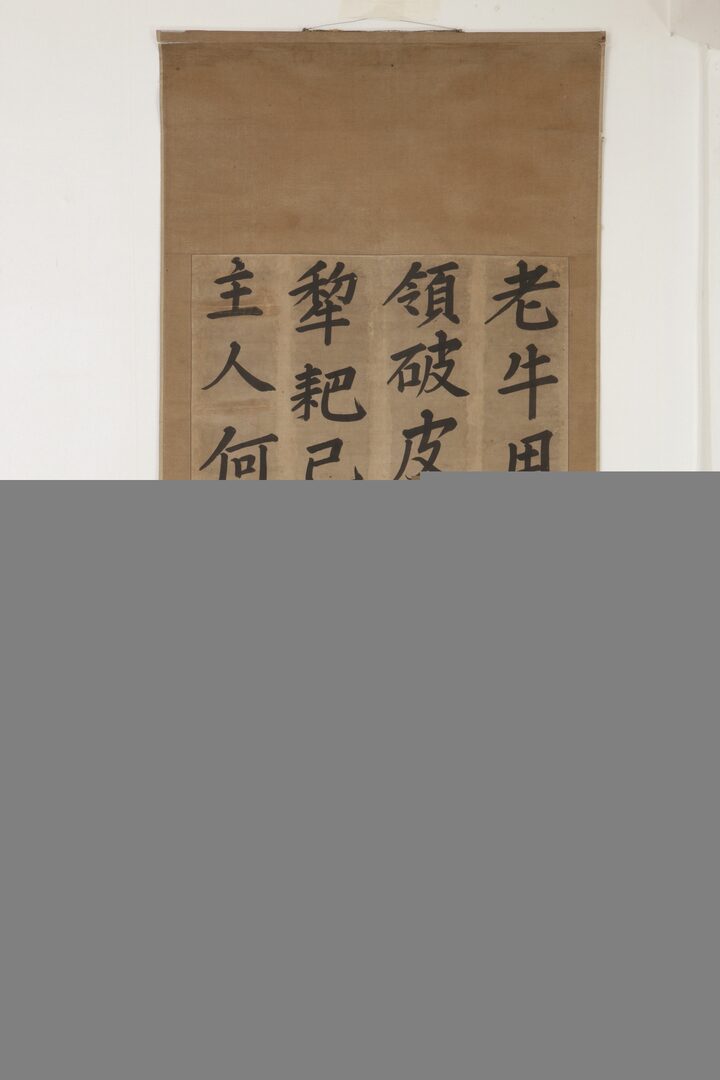 老牛用
領破皮
犂耙已
主人何